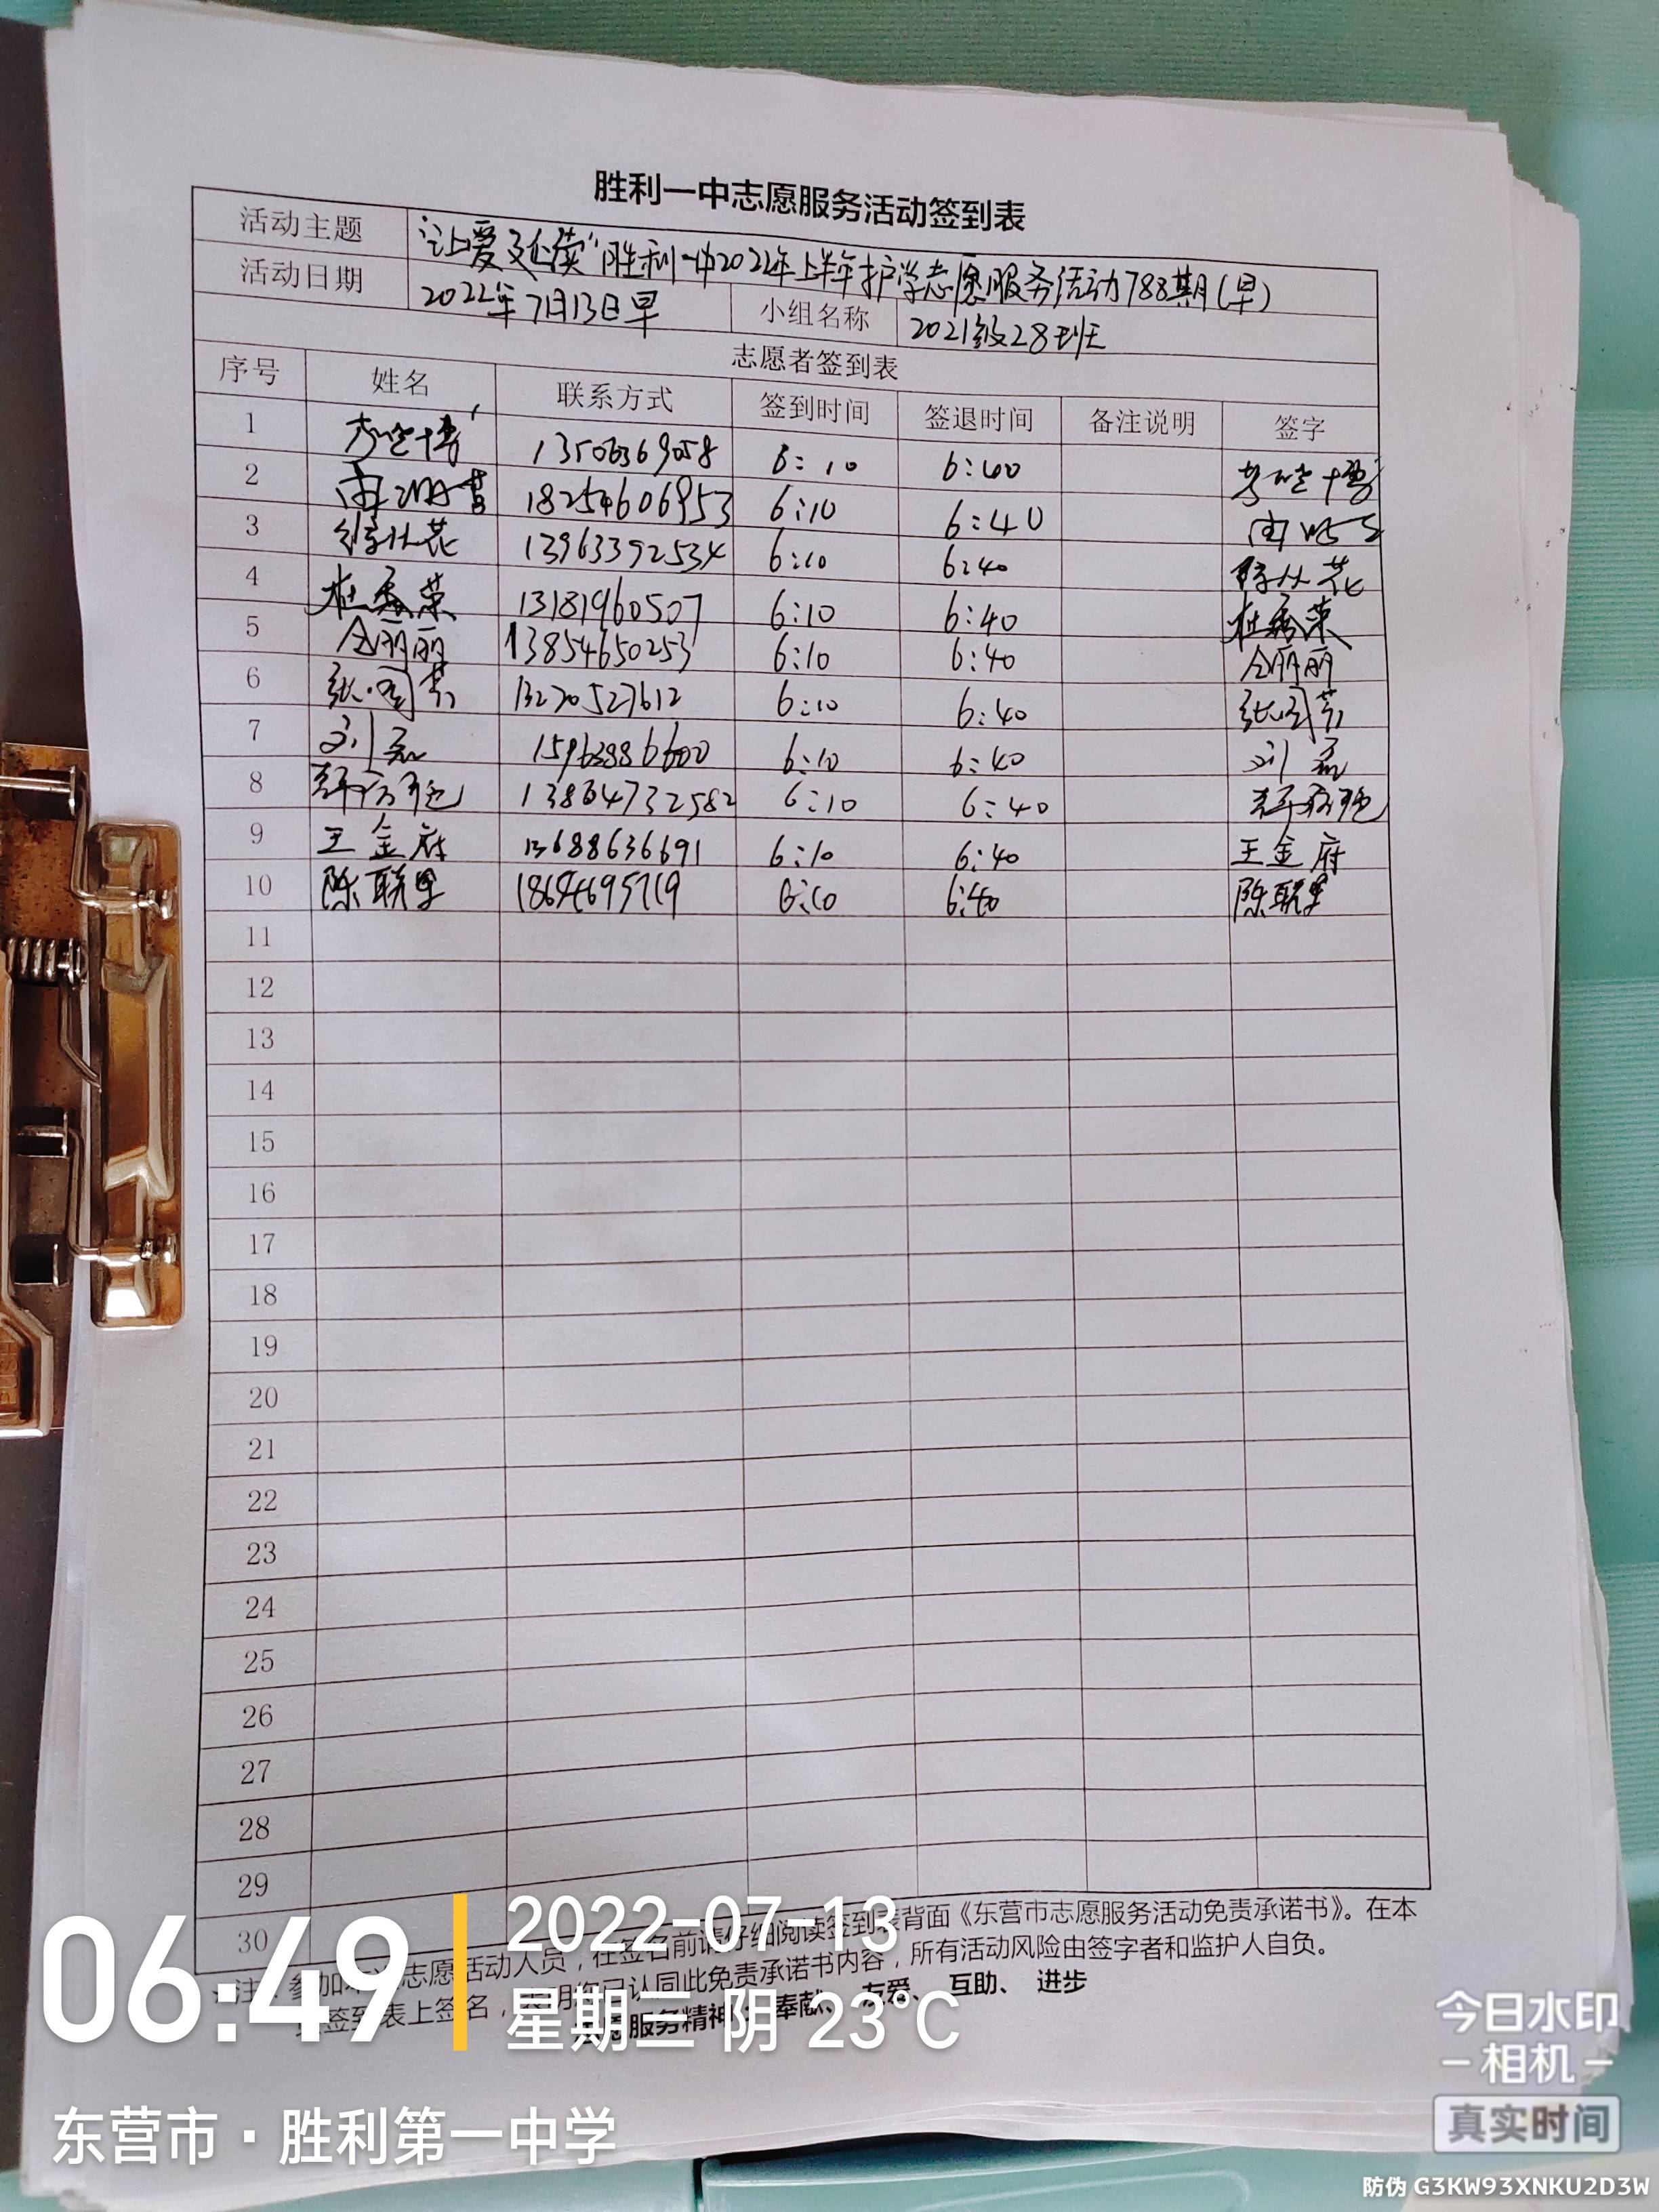 胜利一中志愿服务活动签到表
活动主题 "让爱延续"胜利一中2022年上半年护学志愿服务活动788期(早)
活动日期 2022年7月13日早 小组名称 2021级28班
志愿者签到表
序号 姓名 联系方式 签到时间 签退时间 备注说明 签字
1 13506369058 6:10 6:40
2 18254606953 6:10 6:40
3 13963392534 6:10 6:40
4 杜秀荣 13181960507 6:10 6:40 杜秀荣
5 仝丽丽 13854650253 6:10 6:40 仝丽丽
6 13270527612 6:10 6:40
7 刘磊 15963886600 6:10 6:40 刘磊
8 13864732582 6:10 6:40
9 王金府 13688636691 6:10 6:40 王金府
10 陈联星 6:10 6:40 陈联星
11
12
13
14
15
16
17
18
19
20
21
22
23
24
25
26
27
28
29
30
注:参加 志愿 活动人员,在签名前请仔细阅读签到表背面《东营市志愿服务活动免责承诺书》。在本
签到表上签名, 已认同此免责承诺书内容,所有活动风险由签字者和监护人自负。
服务精神: 奉献、 友爱、 互助、 进步
06:49
2022-07-13
星期三 阴 23°C
东营市·胜利第一中学
今日水印
相机
真实时间
防伪 G3KW93XNKU2D3W